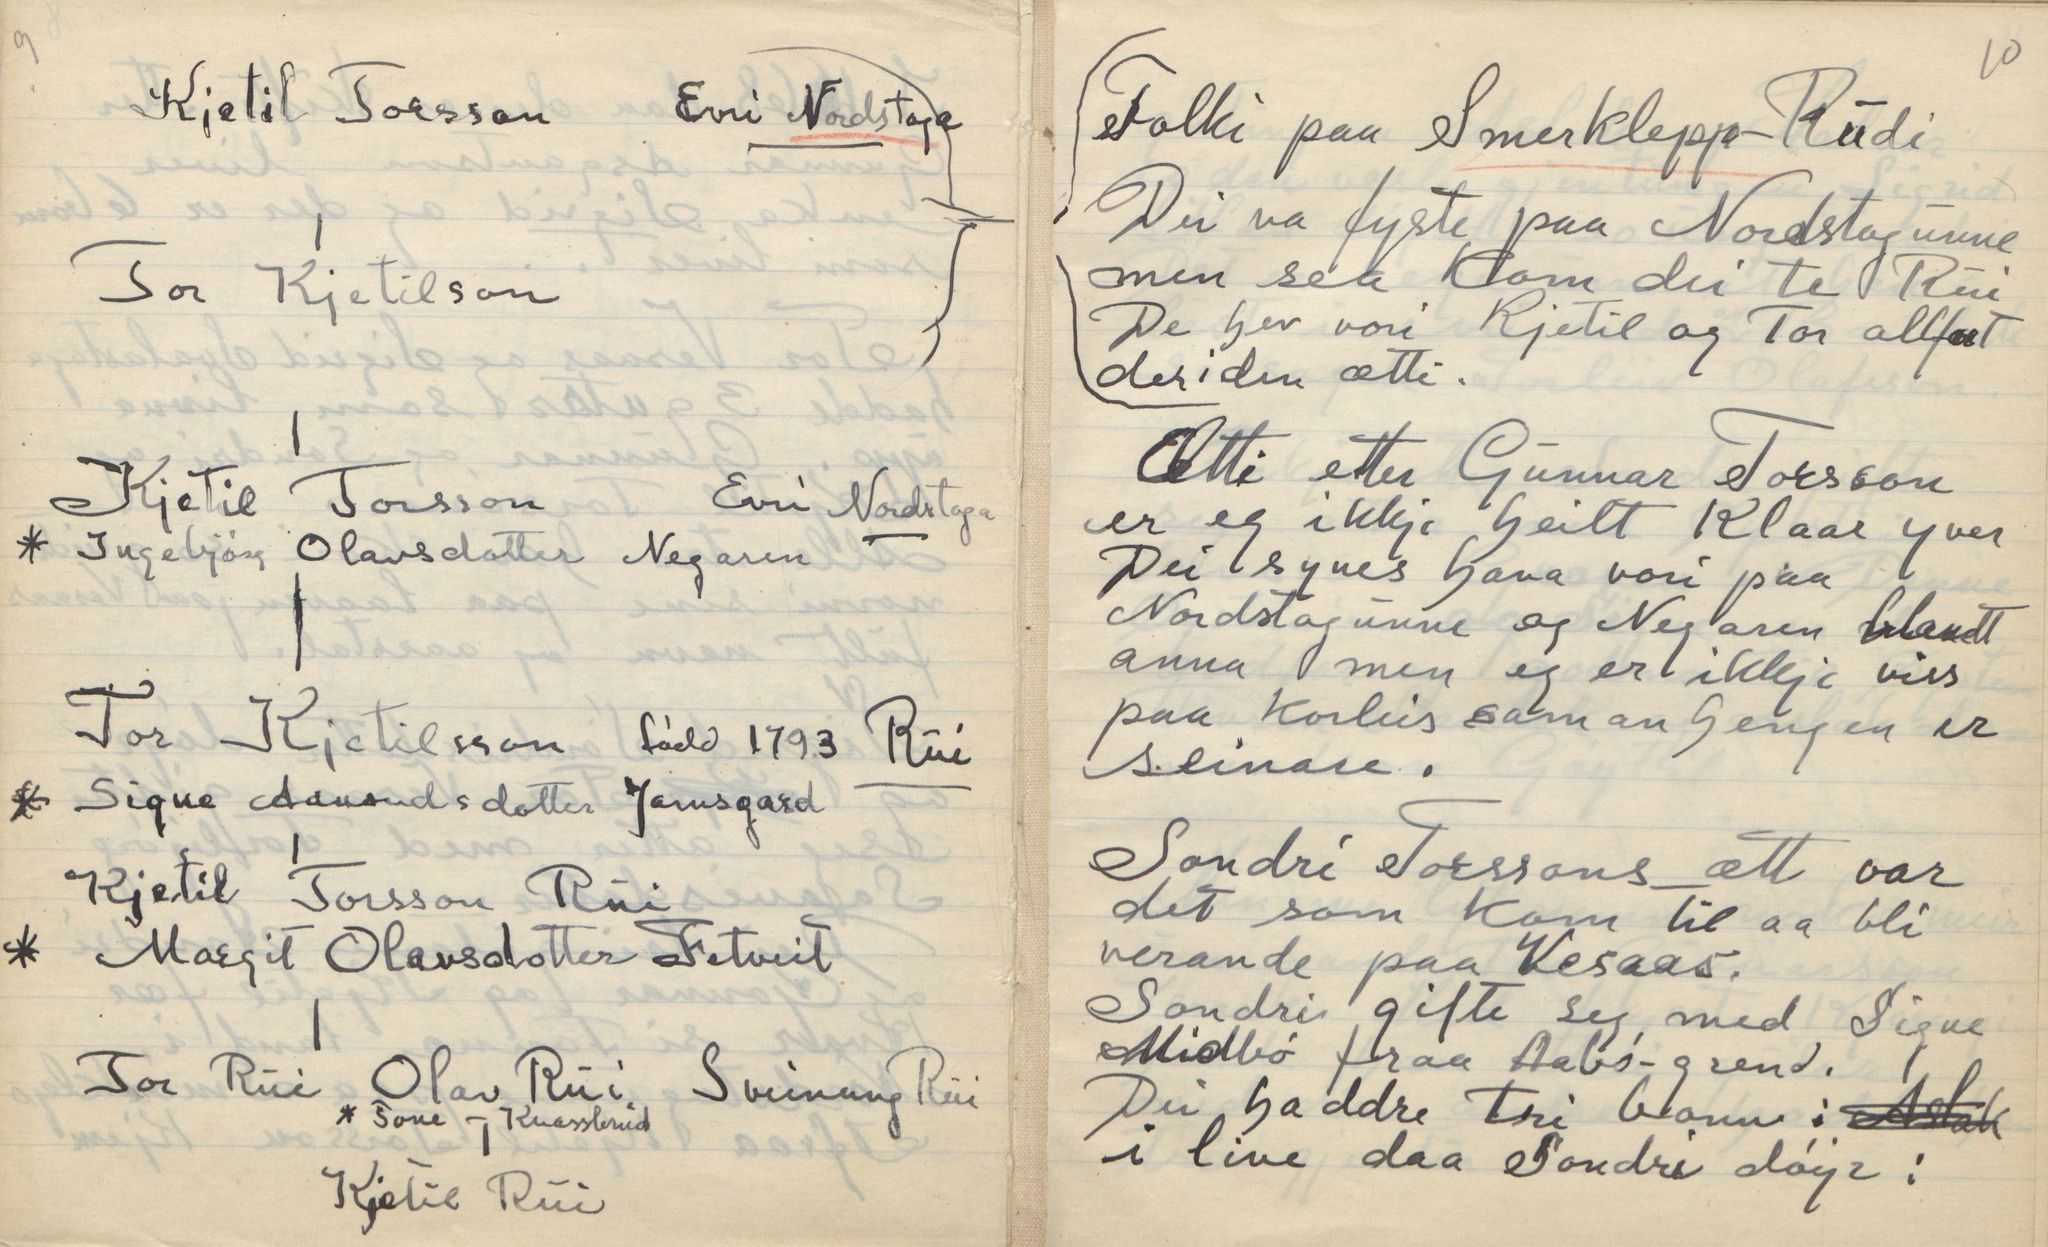 9
Kjetil Torsson Evri Nordstoga
Tor Kjetilson
Kjetil Torsson Evri Nordstoga
* Ingebjórg Olavsdotter Negaren
Tor Kjetilsson fódd 1793 Rūi
* Signe Aamundsdotter Jamsgard
Kjetil Torsson Rūi
* Margit Olavsdotter Fetveit
Tor Rūi Olav Rūi Sveinung Rūi
* Tone Knassbrūd
Kjetil Rūi
10
Folki paa Smerklepp-Rūdi
Dei va fyste paa Nordstogūnne
men sea kom dei te Rūi
De hev vori Kjetil og Tor allfort
i den ætti.
Ætti etter Gūnnar Torsson
er eg ikkje heilt klaar yver
Dei synes hava vori paa
Nordstogūnne og Negaren blandt
anna men eg er ikkje viss
paa korleis samanhengen er
seinare.
Sondri Torssons ætt var
det som kom til aa bli
verande paa Vesaas.
Sondri gifte seg med Signe
Midbó fraa Aabó-grend.
Dei haddre tri bonn i Aslak
i live daa Sondri dóyr :